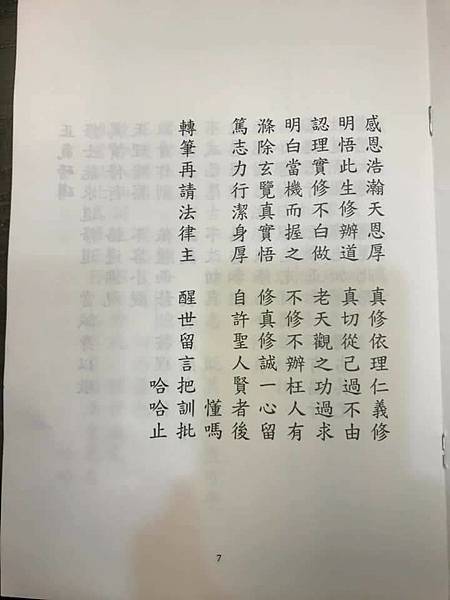 感恩浩瀚天恩厚　真修依理仁義修
明悟此生修辦道　真切從己過不由
認理實修不白做　老天觀之功過求
明白當機而握之　不修不辦枉人有
滌除玄覽真實悟　修真修誠一心留
篤志力行潔身厚　自許聖人賢者後
懂嗎
轉筆再請法律主　醒世留言把訓批
哈哈止
7